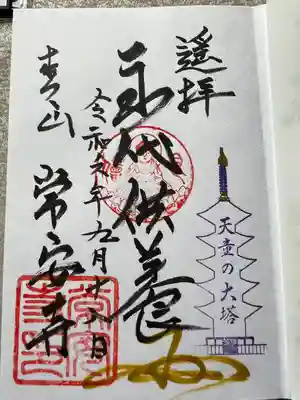 遥拝
天壺の大塔
永代供養
令和六年九月十八日
青山 常安寺